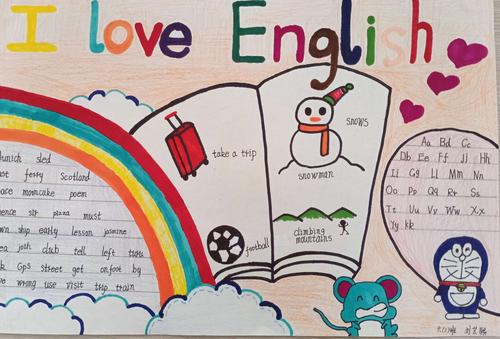 I love English
unich sled
ferry Scotland
mooncake poem
sir pizza must
ship early lesson jasmine
josh club tell left
GPS street get on foot by
wrong use visit trip train
take a trip
football
snows
snowman
climbing
mountains
Aa Bd Cc
Db Ee Ff Jj Hh
Ii Gg Ll Mm Nn
Oo Pp Qq Rr Ss
Tt Uu Vv Ww Xx
Yy kk